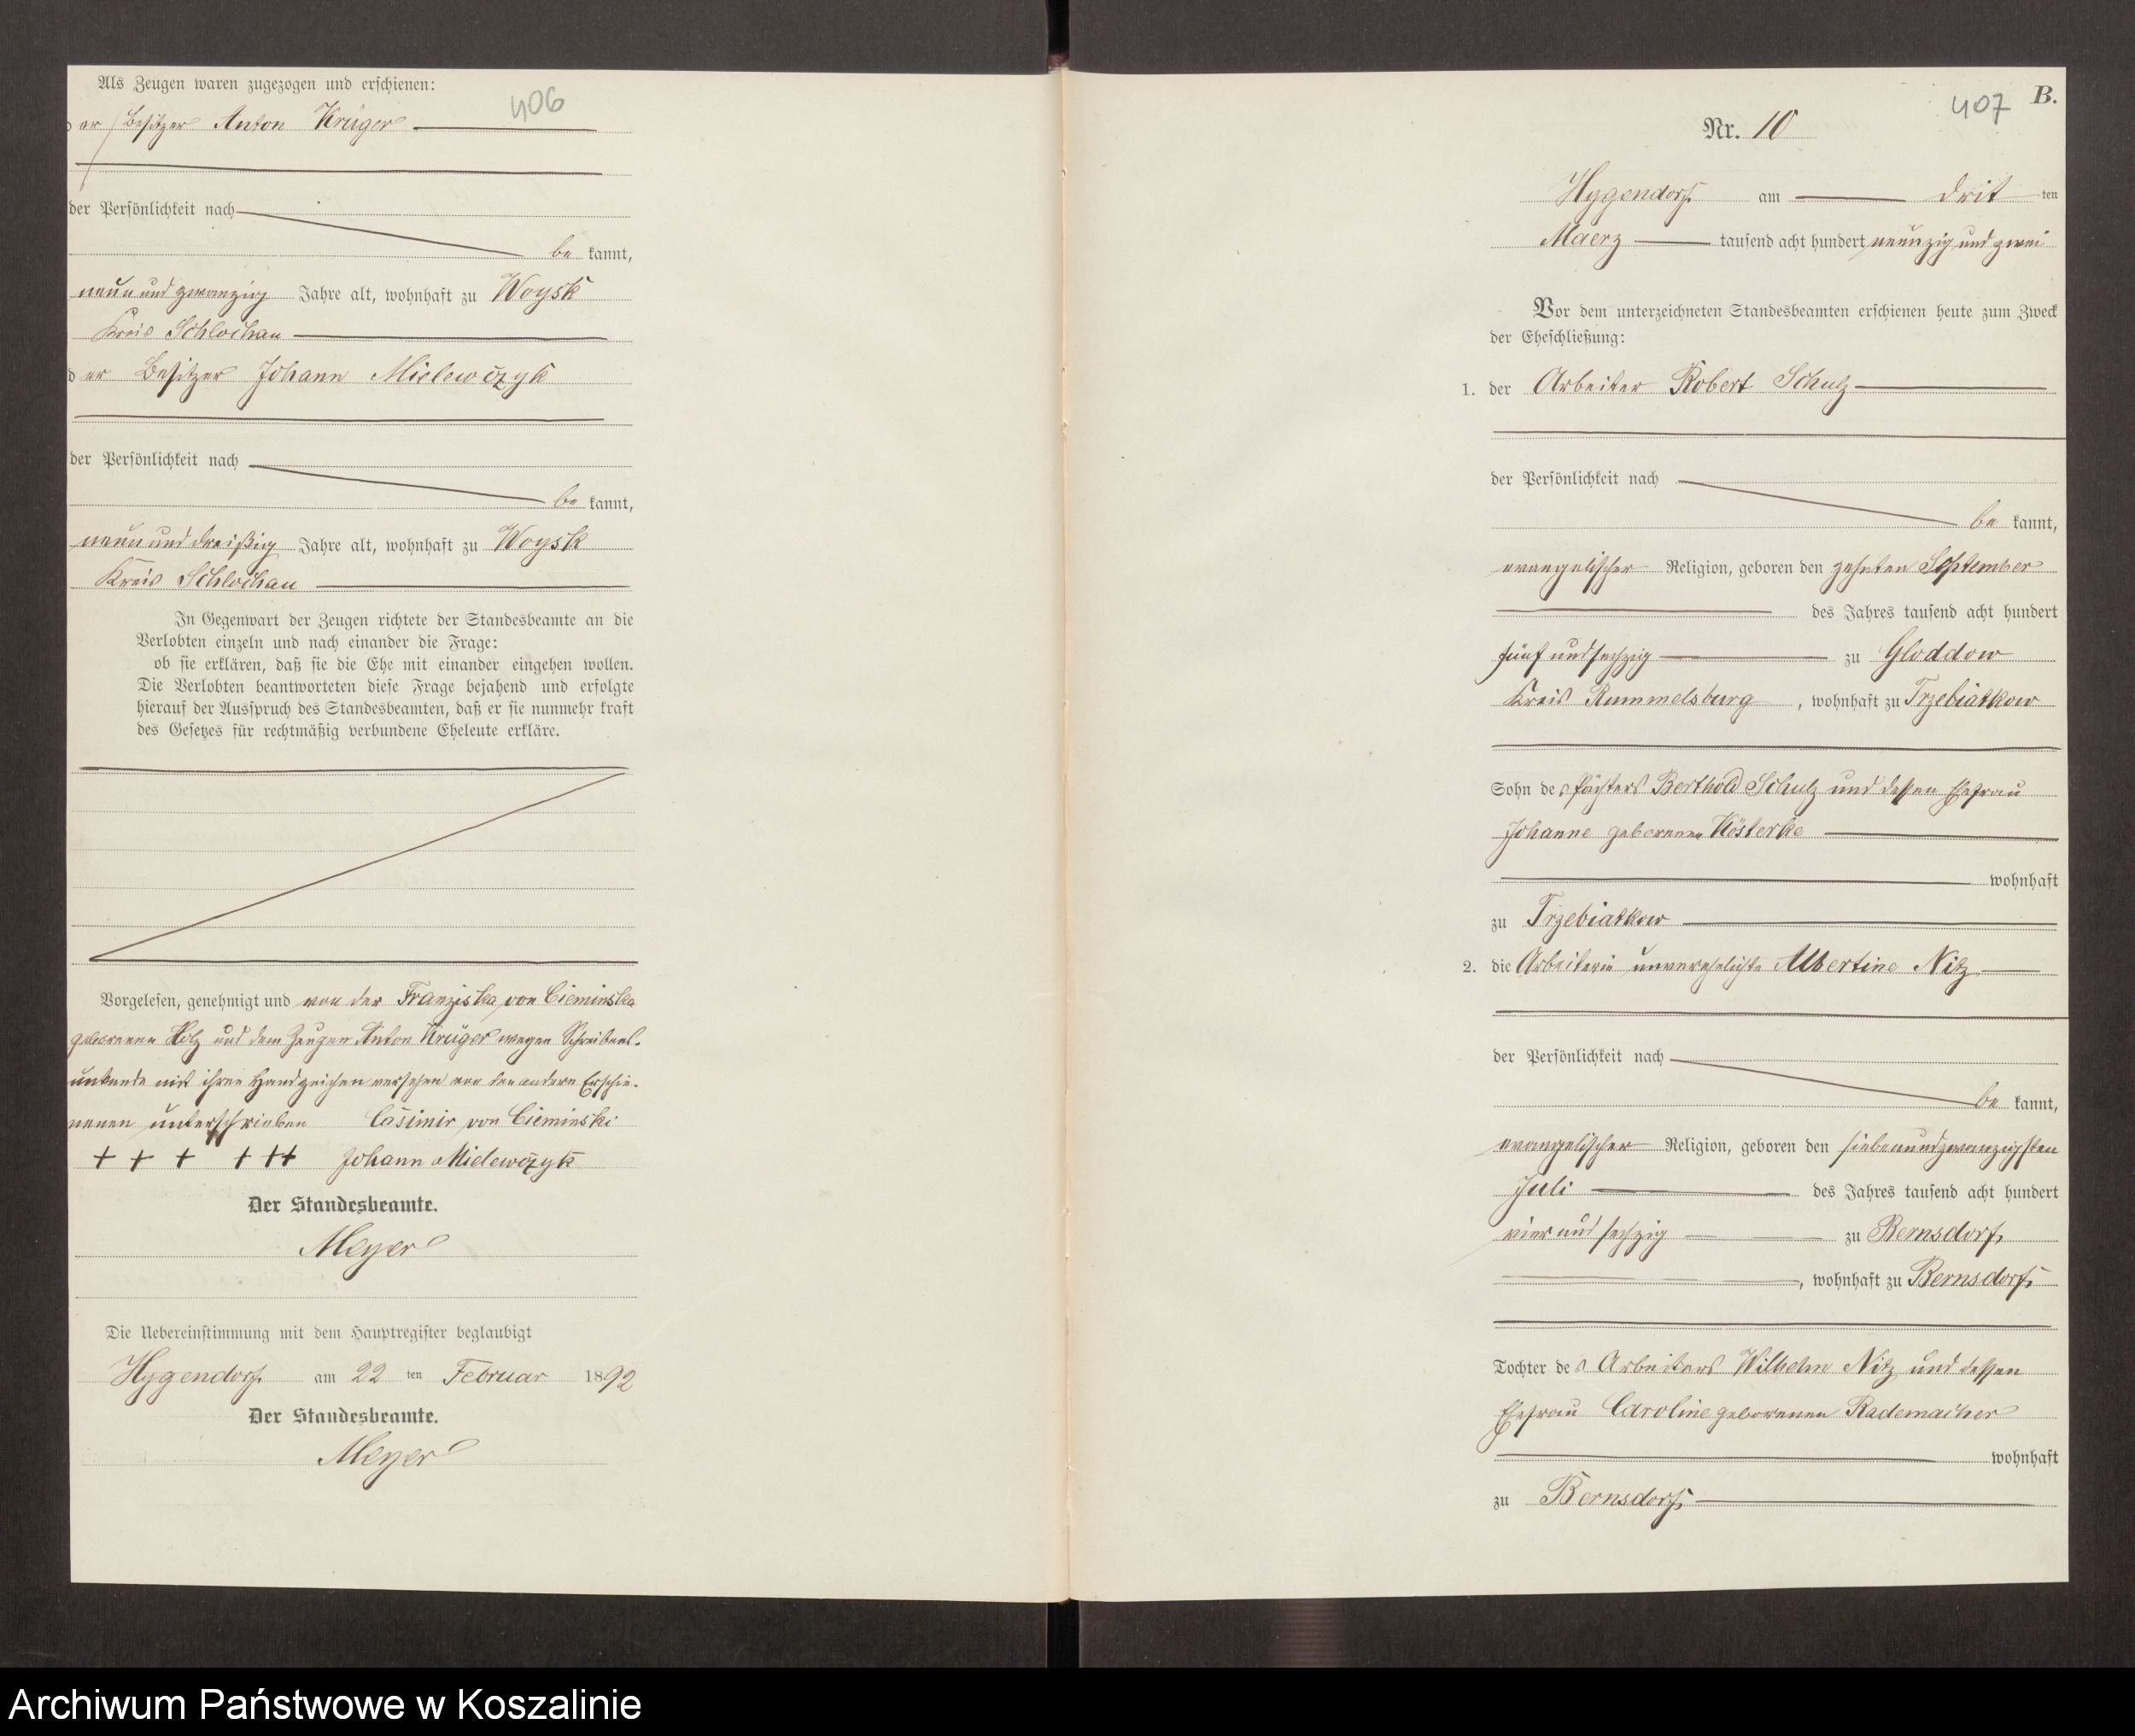 Als Zeugen waren zugezogen und erschienen:
406
der Besitzer Anton Krüger
der Persönlichkeit nach
be kannt,
neun und zwanzig Jahre alt, wohnhaft zu Woysk
Kreis Schlochau
der Besitzer Johann Mielewczyk
der Persönlichkeit nach
be kannt,
neun und dreißig Jahre alt, wohnhaft zu Woysk
Kreis Schlochau
In Gegenwart der Zeugen richtete der Standesbeamte an die
Verlobten einzeln und nach einander die Frage:
ob sie erklären, daß sie die Ehe mit einander eingehen wollen.
Die Verlobten beantworteten diese Frage bejahend und erfolgte
hierauf der Ausspruch des Standesbeamten, daß er sie nunmehr kraft
des Gesetzes für rechtmäßig verbundene Eheleute erkläre.
Vorgelesen, genehmigt und von der Franziska von Cieminska
geborenen und dem Zeugen Anton Krüger wegen Schreibens-
unkunde mit ihren Handzeichen versehen von den andern Erschie-
nenen unterschrieben Casimir von Cieminski
+ + + + + + Johann Mielewczyk
Der Standesbeamte.
Meyer
Die Uebereinstimmung mit dem Hauptregister beglaubigt
Hygendorf am 22 ten Februar 1892
Der Standesbeamte.
Meyer
407 B.
Nr. 10
Hygendorf am drit ten
Maerz tausend acht hundert neunzig und zwei
Vor dem unterzeichneten Standesbeamten erschienen heute zum Zweck
der Eheschließung:
1. der Arbeiter Robert Schulz
der Persönlichkeit nach
be kannt,
evangelischer Religion, geboren den zehnten September
des Jahres tausend acht hundert
fünf und sechzig zu Gloddow
Kreis Rummelsburg, wohnhaft zu Trzebiatkow
Sohn des Pächters Berthold Schulz und dessen Ehefrau
Johanne geborenen Kösterke
wohnhaft
zu Trzebiatkow
2. die Arbeiterin unverehelichte Albertine Nitz
der Persönlichkeit nach
be kannt,
evangelischer Religion, geboren den siebenundzwanzigsten
Juli des Jahres tausend acht hundert
vier und sechzig zu Bernsdorf,
, wohnhaft zu Bernsdorf,
Tochter des Arbeiters Wilhelm Nitz und dessen
Ehefrau Caroline geborenen Rademacher
wohnhaft
zu Bernsdorf,
Archiwum Państwowe w Koszalinie